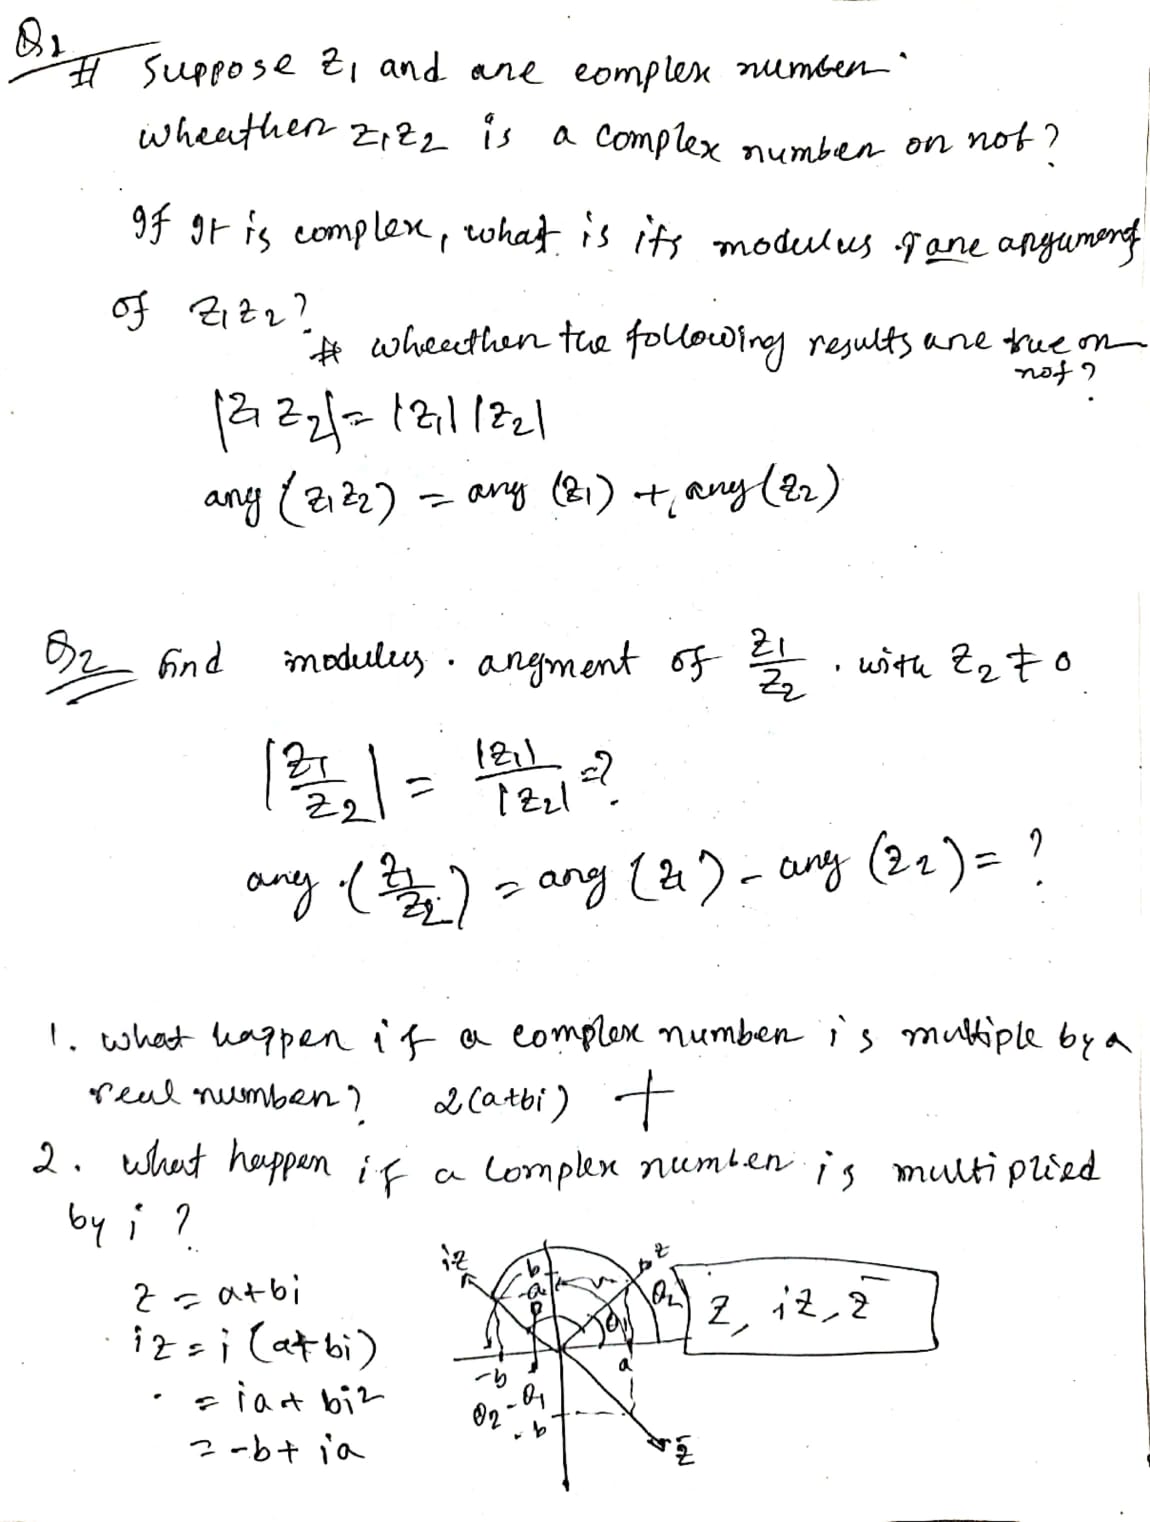 Q1
# Suppose z₁ and are complex number.
wheather z₁z₂ is a complex number or not?
If It is complex, what is its modulus & are argument
of z₁z₂?
# wheether the following results are true or
not?
|z₁ z₂| = |z₁| |z₂|
arg (z₁z₂) = arg (z₁) + arg (z₂)
Q2 find modulus . argment of z₁/z₂ . with z₂ ≠ 0
|z₁/z₂| = |z₁|/|z₂| =?
arg (z₁/z₂) = arg (z₁) - arg (z₂) = ?
1. what happen if a complex number is multiple by a
real number? 2(a+bi) +
2. what happen if a complex number is multiplied
by i ?
z = a+bi
iz = i (a+bi)
= ia + bi²
= -b + ia
iz
b
z
-a
θ₂
θ₁
z, iz, z̄
-b
a
θ₂ - θ₁
-b
z̄